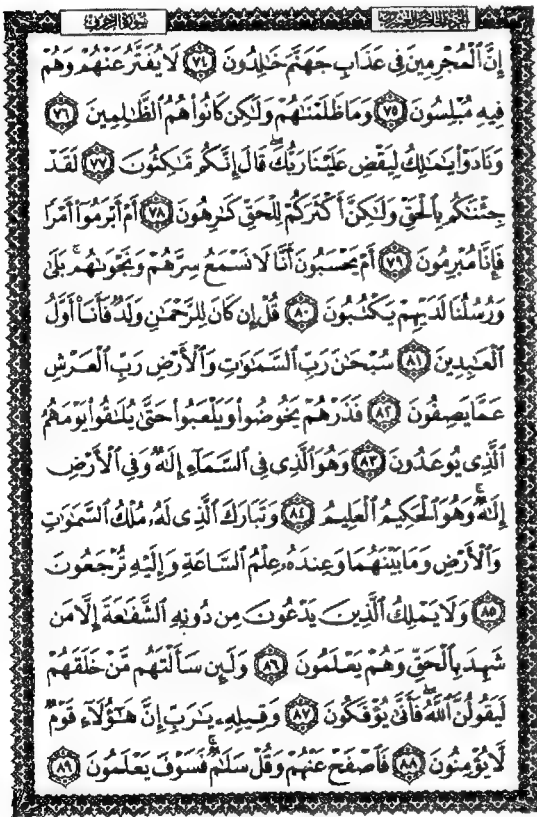 الجزء الخامس والعشرون سورة الزخرف
إِنَّ ٱلْمُجْرِمِينَ فِى عَذَابِ جَهَنَّمَ خَٰلِدُونَ ٧٤ لَا يُفَتَّرُ عَنْهُمْ وَهُمْ
فِيهِ مُبْلِسُونَ ٧٥ وَمَا ظَلَمْنَٰهُمْ وَلَٰكِن كَانُوا۟ هُمُ ٱلظَّٰلِمِينَ ٧٦
وَنَادَوْا۟ يَٰمَٰلِكُ لِيَقْضِ عَلَيْنَا رَبُّكَ ۖ قَالَ إِنَّكُم مَّٰكِثُونَ ٧٧ لَقَدْ
جِئْنَٰكُم بِٱلْحَقِّ وَلَٰكِنَّ أَكْثَرَكُمْ لِلْحَقِّ كَٰرِهُونَ ٧٨ أَمْ أَبْرَمُوٓا۟ أَمْرًا
فَإِنَّا مُبْرِمُونَ ٧٩ أَمْ يَحْسَبُونَ أَنَّا لَا نَسْمَعُ سِرَّهُمْ وَنَجْوَىٰهُم ۚ بَلَىٰ
وَرُسُلُنَا لَدَيْهِمْ يَكْتُبُونَ ٨٠ قُلْ إِن كَانَ لِلرَّحْمَٰنِ وَلَدٌ فَأَنَا۠ أَوَّلُ
ٱلْعَٰبِدِينَ ٨١ سُبْحَٰنَ رَبِّ ٱلسَّمَٰوَٰتِ وَٱلْأَرْضِ رَبِّ ٱلْعَرْشِ
عَمَّا يَصِفُونَ ٨٢ فَذَرْهُمْ يَخُوضُوا۟ وَيَلْعَبُوا۟ حَتَّىٰ يُلَٰقُوا۟ يَوْمَهُمُ
ٱلَّذِى يُوعَدُونَ ٨٣ وَهُوَ ٱلَّذِى فِى ٱلسَّمَآءِ إِلَٰهٌ وَفِى ٱلْأَرْضِ
إِلَٰهٌ ۚ وَهُوَ ٱلْحَكِيمُ ٱلْعَلِيمُ ٨٤ وَتَبَارَكَ ٱلَّذِى لَهُۥ مُلْكُ ٱلسَّمَٰوَٰتِ
وَٱلْأَرْضِ وَمَا بَيْنَهُمَا وَعِندَهُۥ عِلْمُ ٱلسَّاعَةِ وَإِلَيْهِ تُرْجَعُونَ
٨٥ وَلَا يَمْلِكُ ٱلَّذِينَ يَدْعُونَ مِن دُونِهِ ٱلشَّفَٰعَةَ إِلَّا مَن
شَهِدَ بِٱلْحَقِّ وَهُمْ يَعْلَمُونَ ٨٦ وَلَئِن سَأَلْتَهُم مَّنْ خَلَقَهُمْ
لَيَقُولُنَّ ٱللَّهُ ۖ فَأَنَّىٰ يُؤْفَكُونَ ٨٧ وَقِيلِهِۦ يَٰرَبِّ إِنَّ هَٰٓؤُلَآءِ قَوْمٌ
لَّا يُؤْمِنُونَ ٨٨ فَٱصْفَحْ عَنْهُمْ وَقُلْ سَلَٰمٌ ۚ فَسَوْفَ يَعْلَمُونَ ٨٩